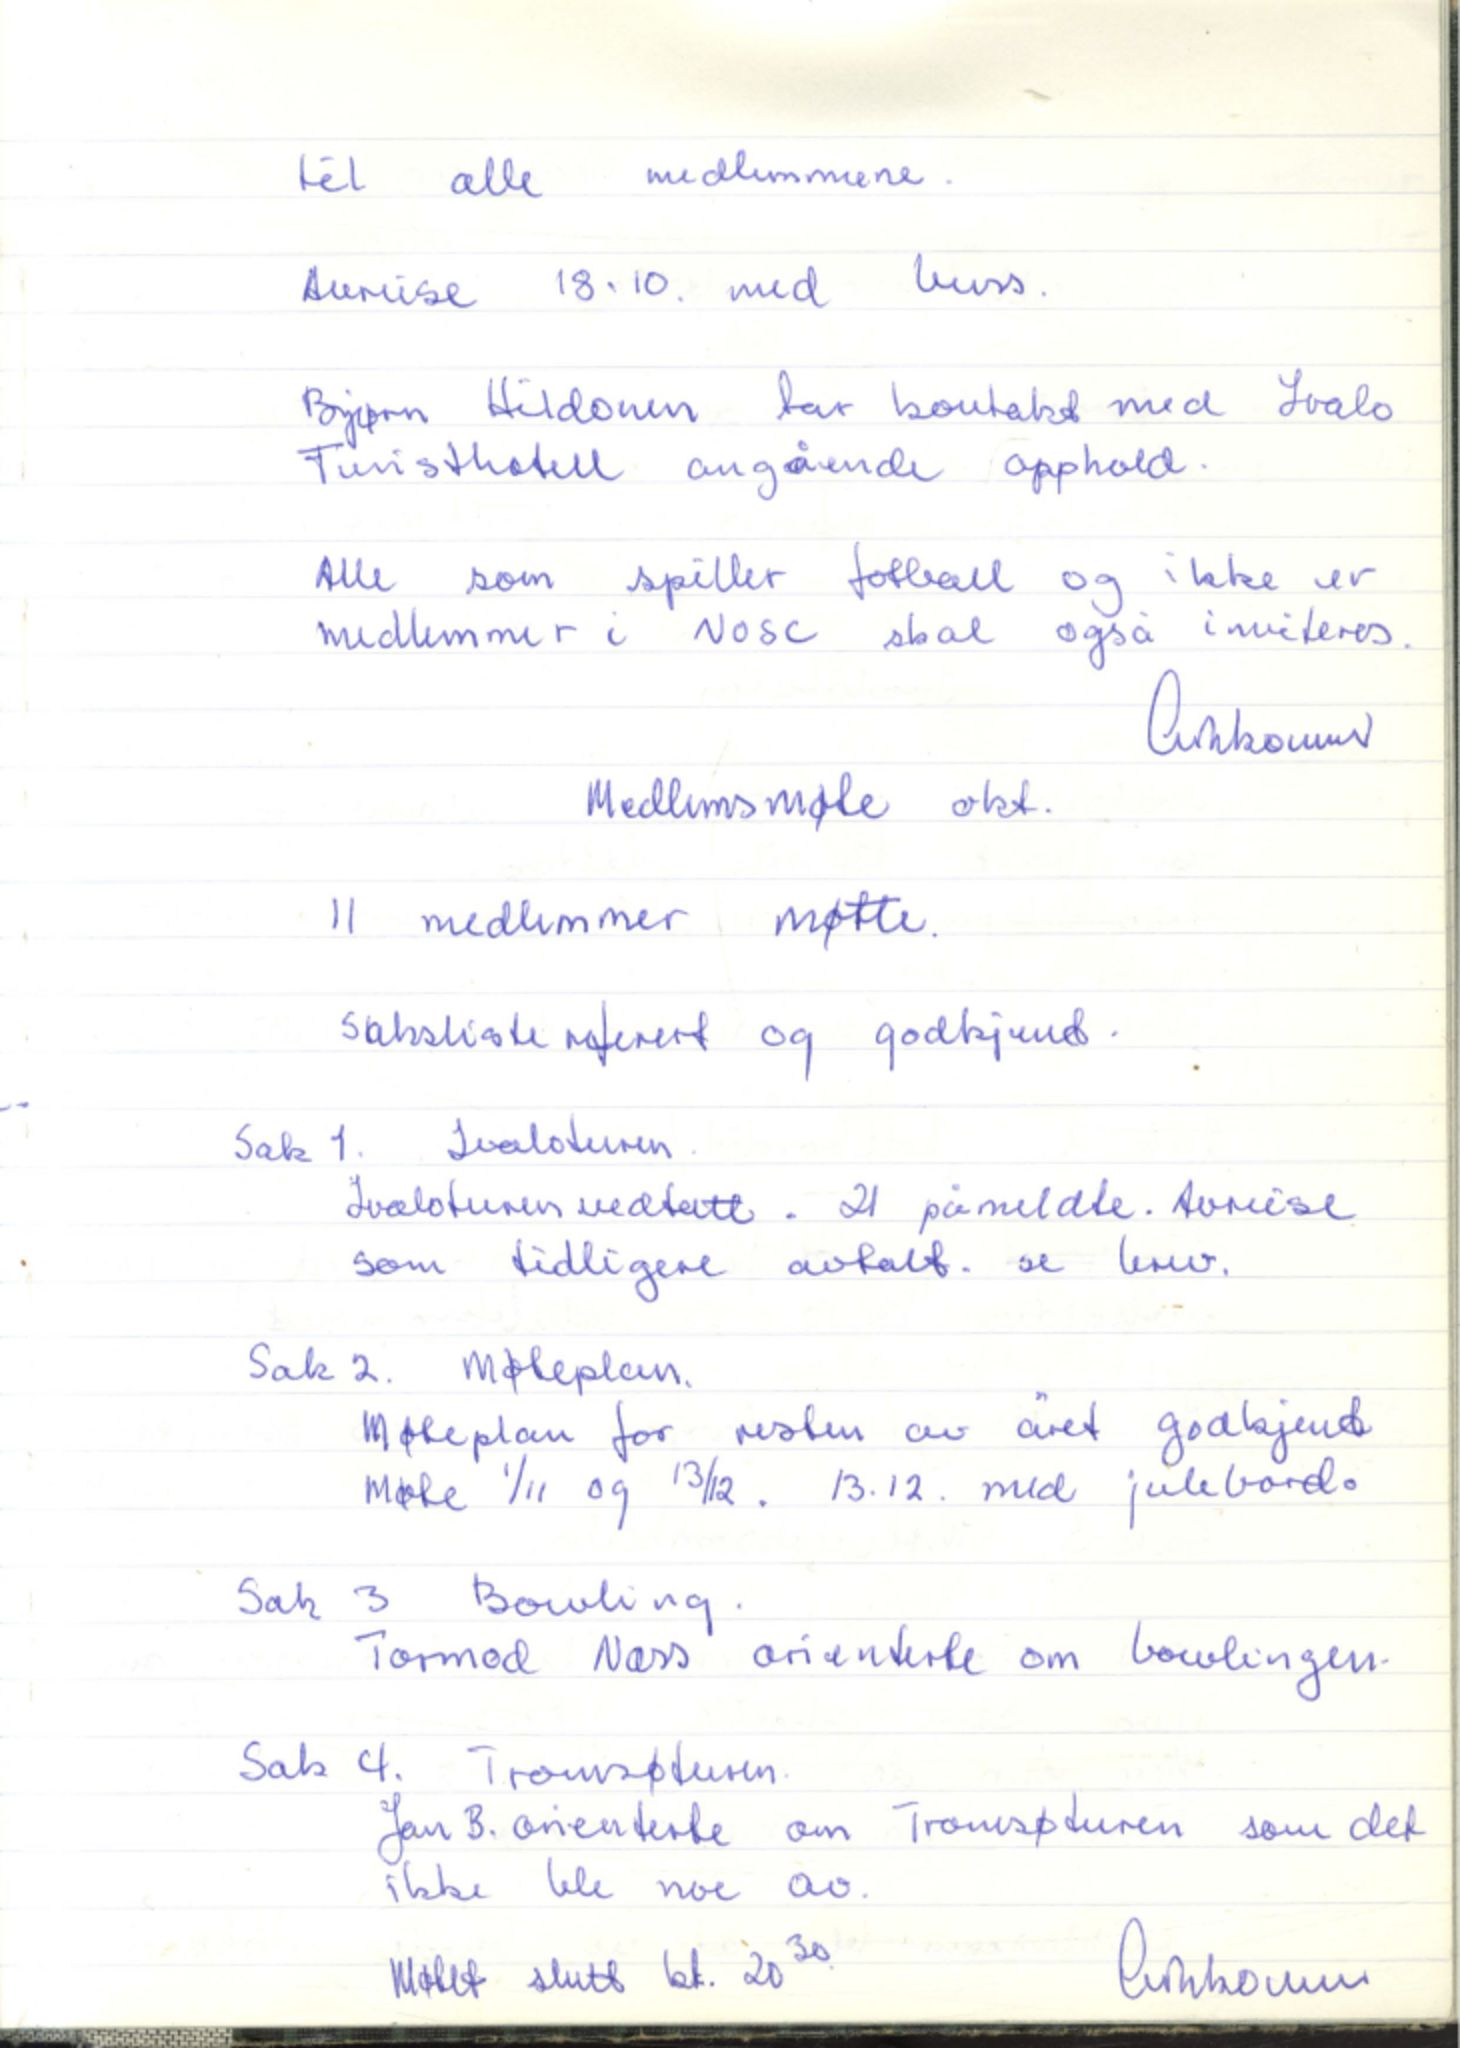 til alle medlemmene.
Avreise 18.10. med buss.
Bjørn Hildonen tar kontakt med Ivalo
Turisthotell angående opphold.
Alle som spiller fotball og ikke er
medlemmer i NOSC skal også inviteres.
Medlemsmøte okt.
11 medlemmer møtte.
Saksliste referert og godkjent.
Sak 1. Ivaloturen.
Ivaloturen vedtatt. 21 påmeldte. Avreise
som tidligere avtalt. se brev.
Sak 2. Møteplan.
Møteplan for resten av året godkjent
Møte 1/11 og 13/12. 13.12. med julebord.
Sak 3 Bowling.
Tormod Næss orienterte om bowlingen.
Sak 4. Tromsøturen.
Jan B. orienterte om Tromsøturen som det
ikke ble noe av.
Møtet slutt kl. 20 30